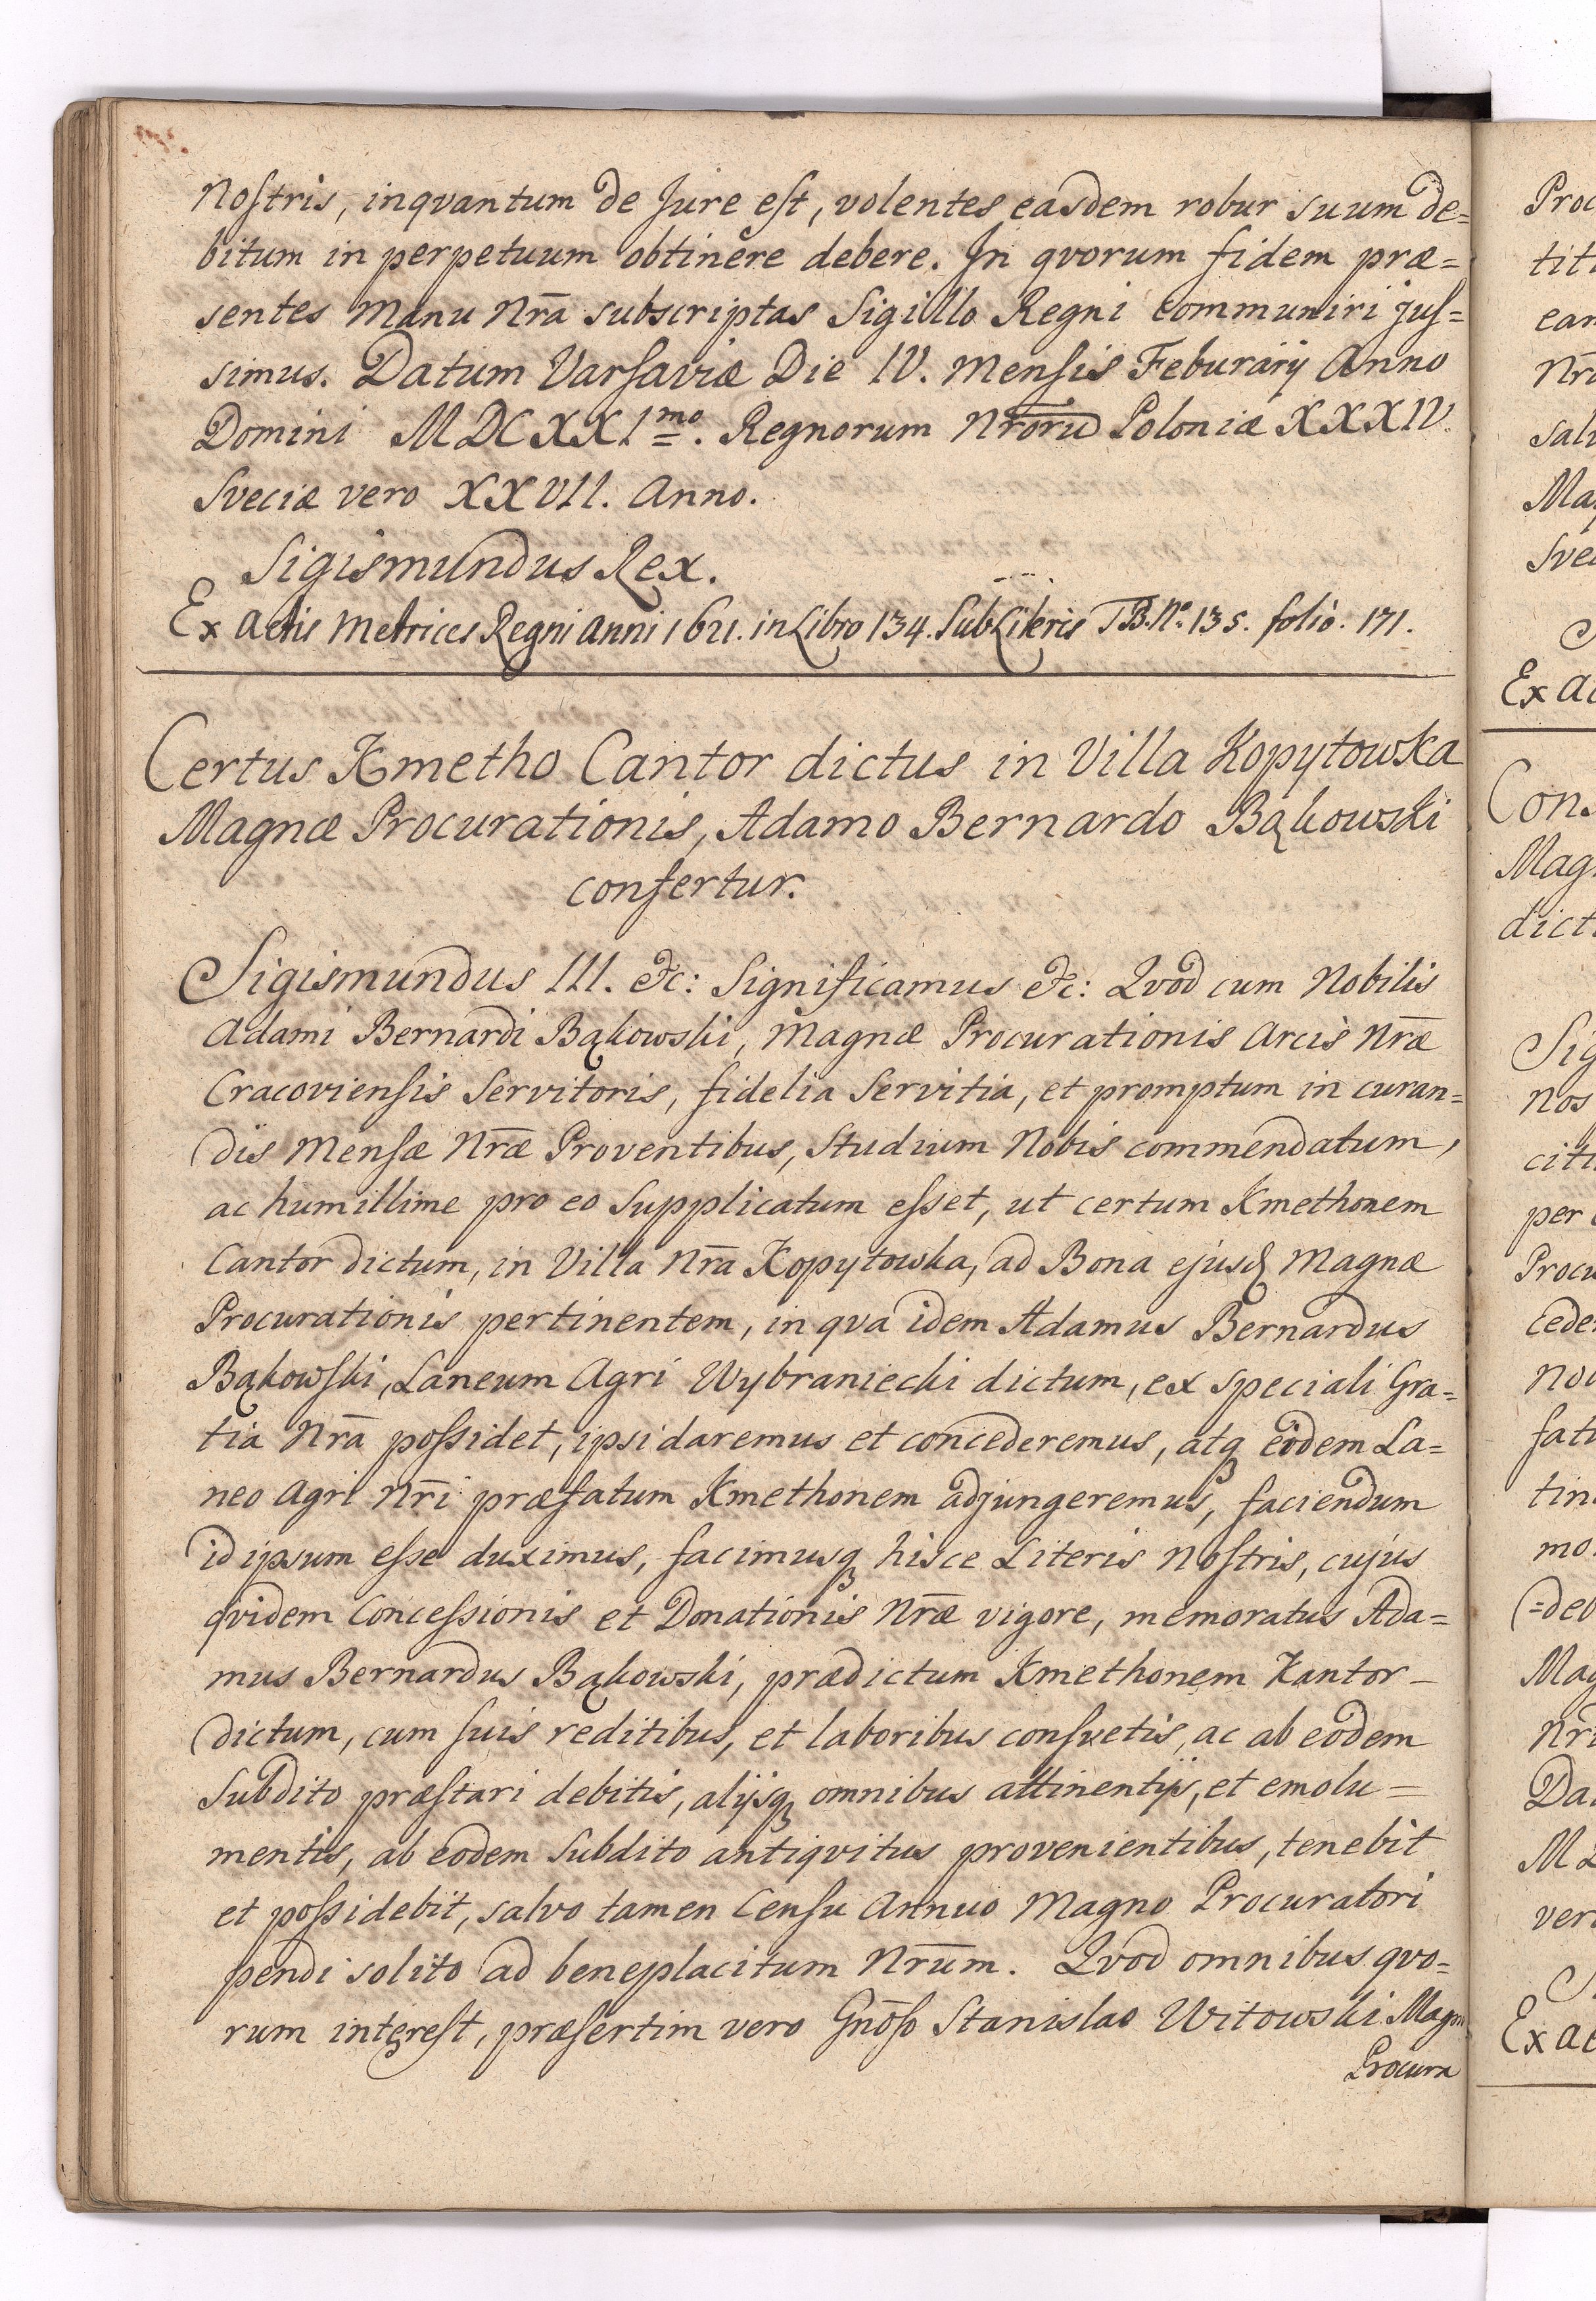 Nostris, inqvantum de Jure est, volentes easdem robur suum de=
bitum in perpetuum obtinere debere. In qvorum fidem præ=
sentes Manu Nrã subscriptas Sigillo Regni communiri jus=
simus. Datum Varsaviæ Die IV. Mensis Feburarij Anno
Domini MDCXXImo. Regnorum Nrõrũ Poloniæ XXXIV.
Sveciæ vero XXVII. Anno.
Sigismundus Rex.
Ex Actis Metrices Regni Anni 1621. in Libro 134. Sub Literis TB. No. 135. folio. 171.
Certus Kmetho Cantor dictus in Villa Kopytowska
Magnæ Procurationis, Adamo Bernardo Bąkowski
confertur.
Sigismundus III. &c: Significamus &c: Qvod cum Nobilis
Adami Bernardi Bąkowski, Magnæ Procurationis Arcis Nræ̃
Cracoviensis Servitoris, fidelia Servitia, et promptum in curan=
dis Mensæ Nræ̃ Proventibus, Studium Nobis commendatum,
ac humillime pro eo Supplicatum esset, ut certum Kmethonem
Cantor dictum, in Villa Nrã Kopytowska, ad Bona ejusdꝫ Magnæ
Procurationis pertinentem, in qva idem Adamus Bernardus
Bąkowski, Laneum Agri Wybraniecki dictum, ex speciali Gra=
tia Nrã possidet, ipsi daremus et concederemus, atqꝫ eidem La=
neo Agri Nrĩ præfatum Kmethonem adjungeremus, faciendum
id ipsum esse duximus, facimusqꝫ hisce Literis Nostris, cujus
qvidem Concessionis et Donationis Nræ̃ vigore, memoratus Ada=
mus Bernardus Bąkowski, prædictum Kmethonem Kantor-
dictum, cum suis reditibus, et laboribus consvetis, ac ab eodem
Subdito præstari debitis, alijsqꝫ omnibus attinentijs, et emolu=
mentis, ab eodem Subdito antiqvitus provenientibus, tenebit
et possidebit, salvo tamen Censu Annuo Magno Procuratori
pendi solito ad beneplacitum Nrũm. Qvod omnibus qvo=
rum interest, præsertim vero Gnõso Stanislao Witowski Magno
Procura